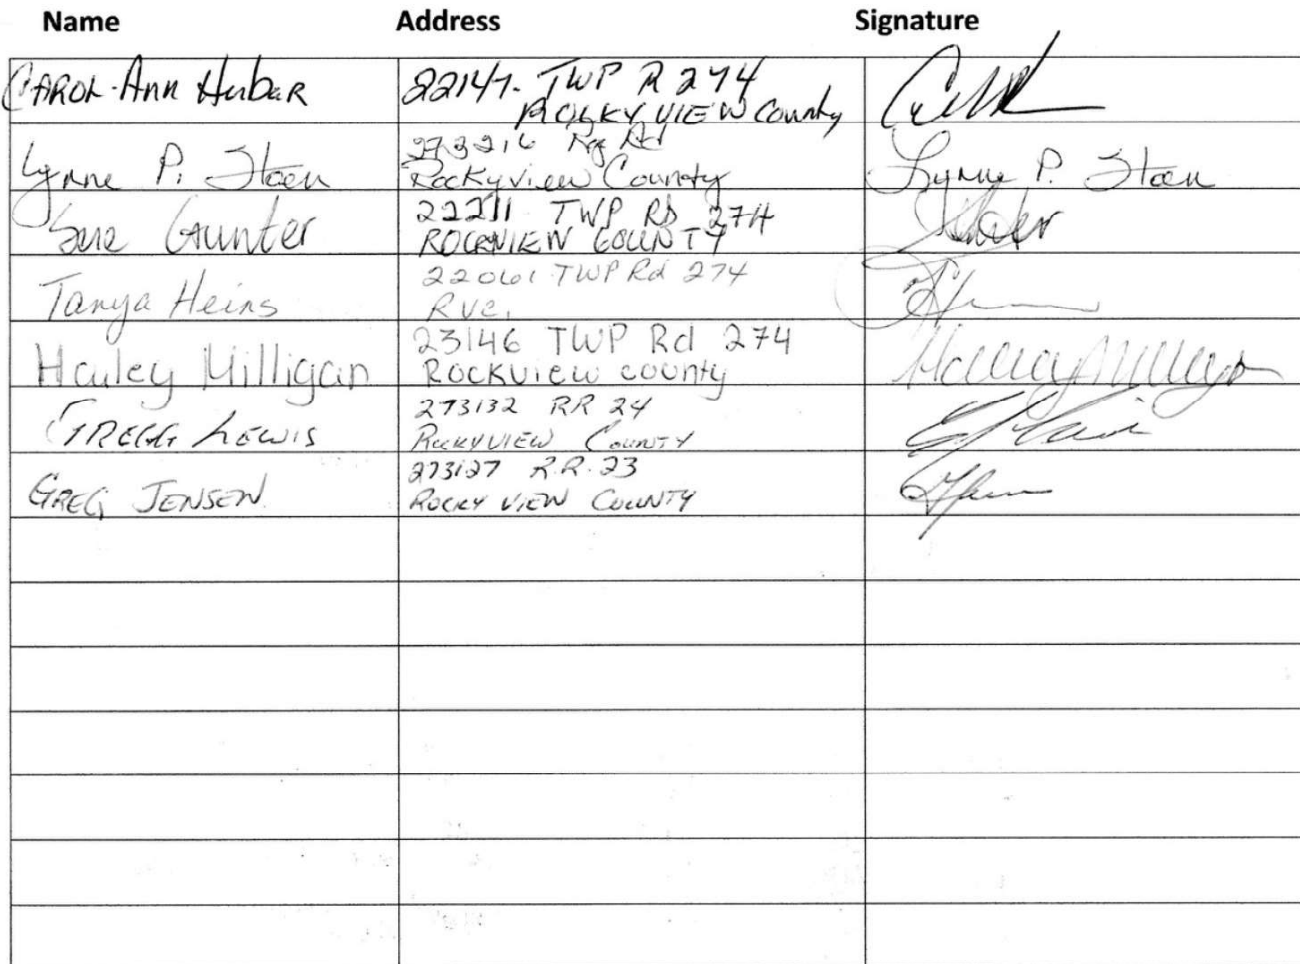 Name Address Signature
CAROL-Ann Huber 22147. TWP R 274
ROCKY VIEW County
Lynne P. Stoen 273216 Rg Rd
Rockyview County Lynne P. Stoen
Sue Gunter 22211 TWP RD 274
ROCKVIEW COUNTY
Tanya Heins 22061 TWP Rd 274
RVC.
Hailey Milligan 23146 TWP Rd 274
Rockview county Hailey Milligan
GREGG LEWIS 273132 RR 24
ROCKYVIEW COUNTY
GREG JENSEN 273127 R.R. 23
ROCKY VIEW COUNTY